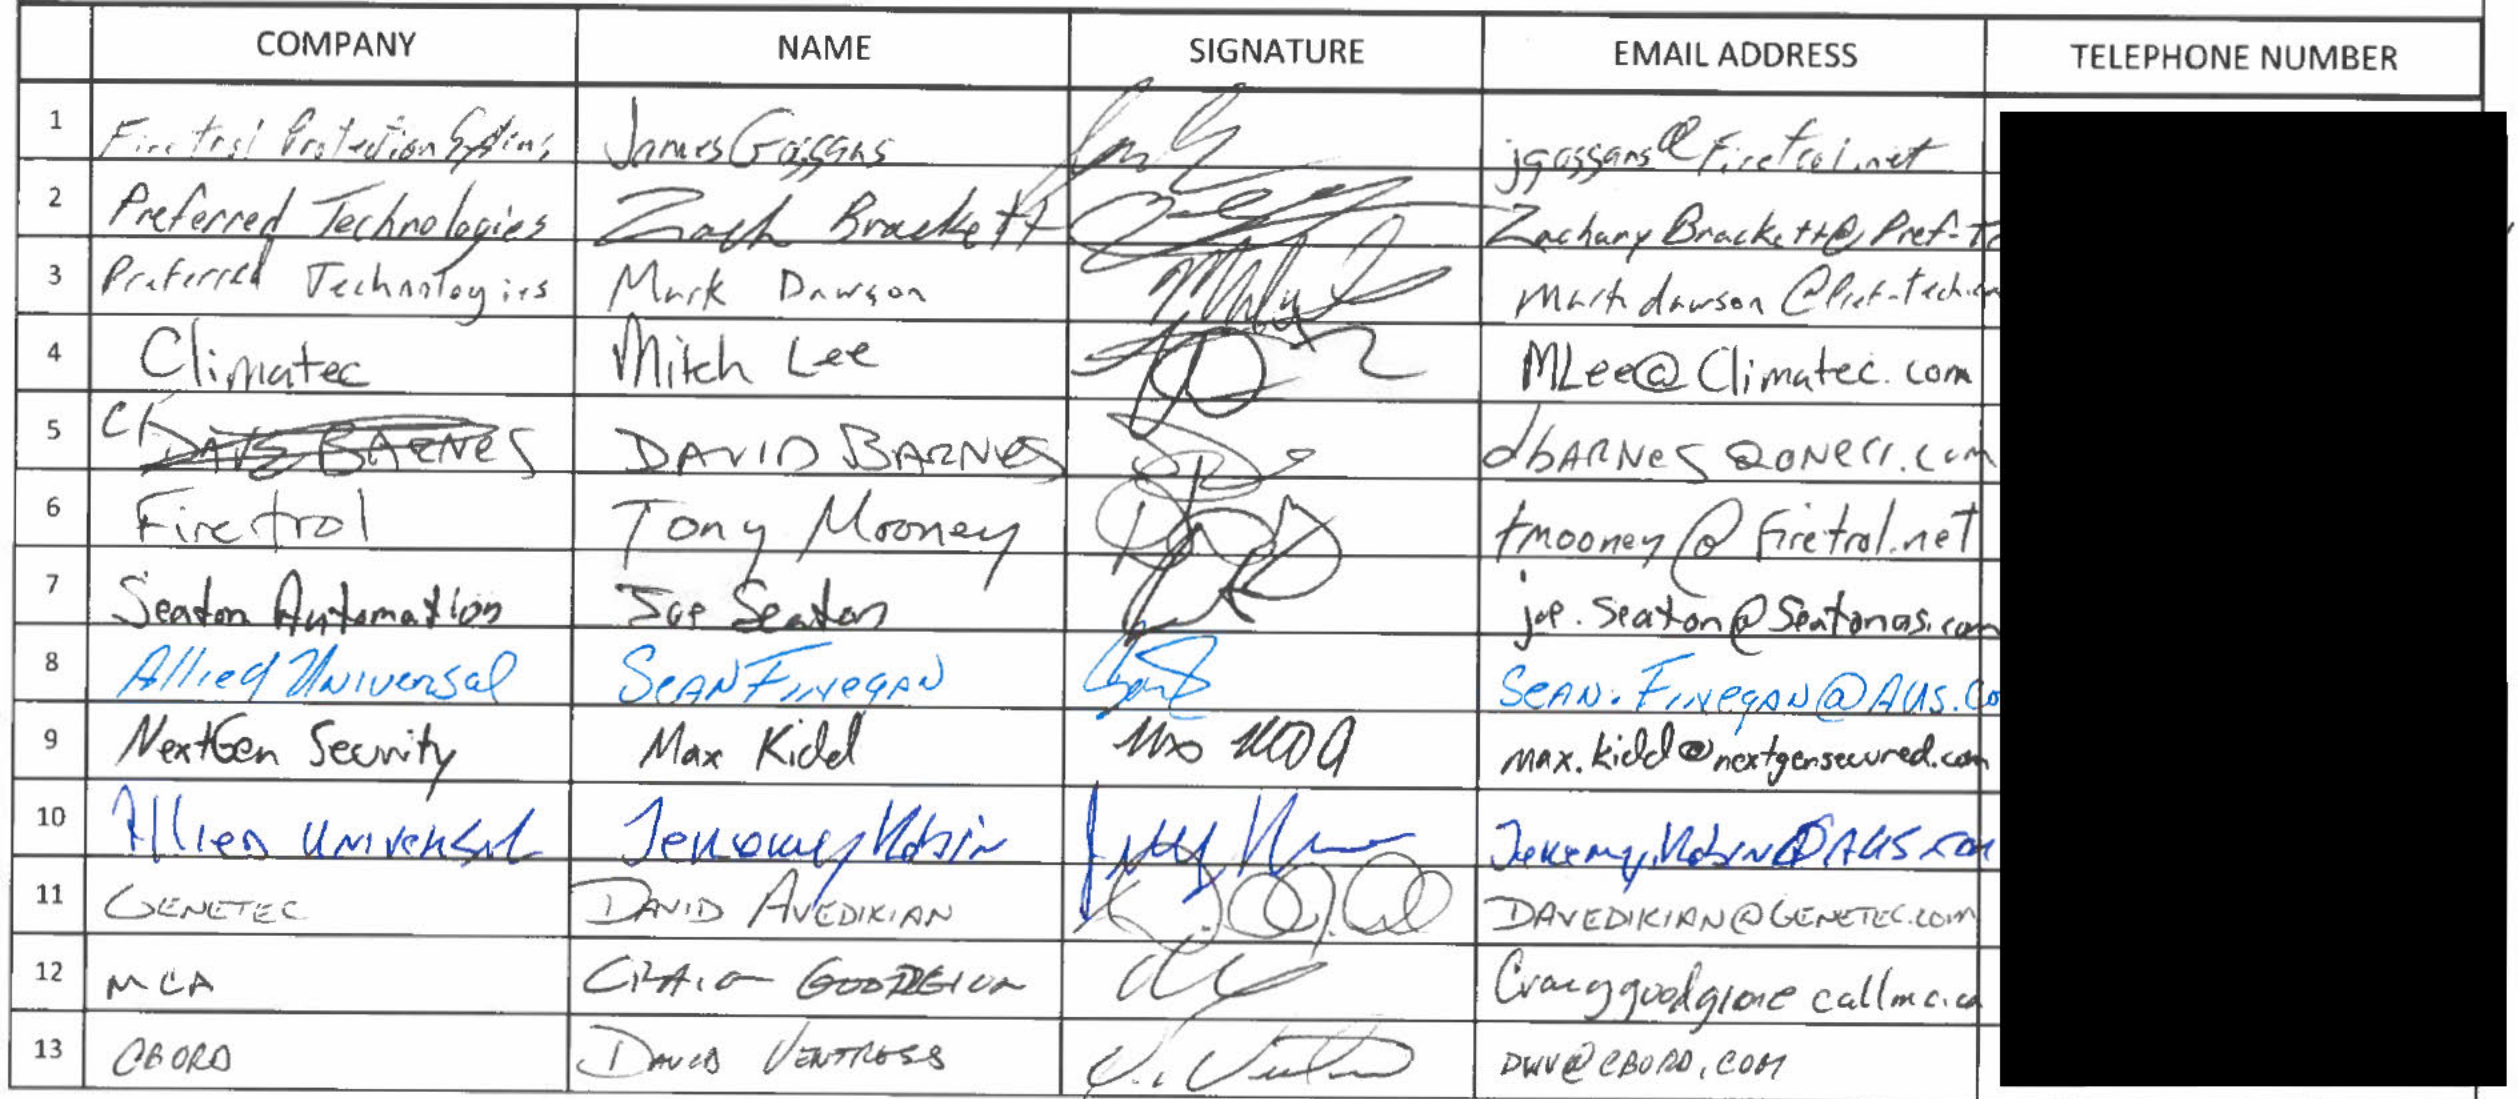 COMPANY NAME SIGNATURE EMAIL ADDRESS TELEPHONE NUMBER
1 Firetrol Protection Systems James Goggans jgoggans@Firetrol.net
2 Preferred Technologies Zach Brackett Zachary Brackett@Pref-Te
3 Preferred Technologies Mark Dawson Mark dawson @Pref-tech.com
4 Climatec Mitch Lee MLee@Climatec.com
5 DAVE BARNES DAVID BARNES dbARNES @ONECI.com
6 Firetrol Tony Mooney tmooney@Firetrol.net
7 Seaton Automation Joe Seaton joe.seaton@Seatonas.com
8 Allied Universal SEAN FINEGAN SEAN.FINEGAN@AUS.Co
9 NextGen Security Max Kidd max.kidd@nextgensecured.com
10 Allied Universal Jeremy Robin Jeremy.Robin@AUS.com
11 GENETEC DAVID AVEDIKIAN DAVEDIKIAN@GENETEC.COM
12 MCA CRAIG GOODGION
13 CBORD DAVID VENTRESS DWV@CBORD.COM